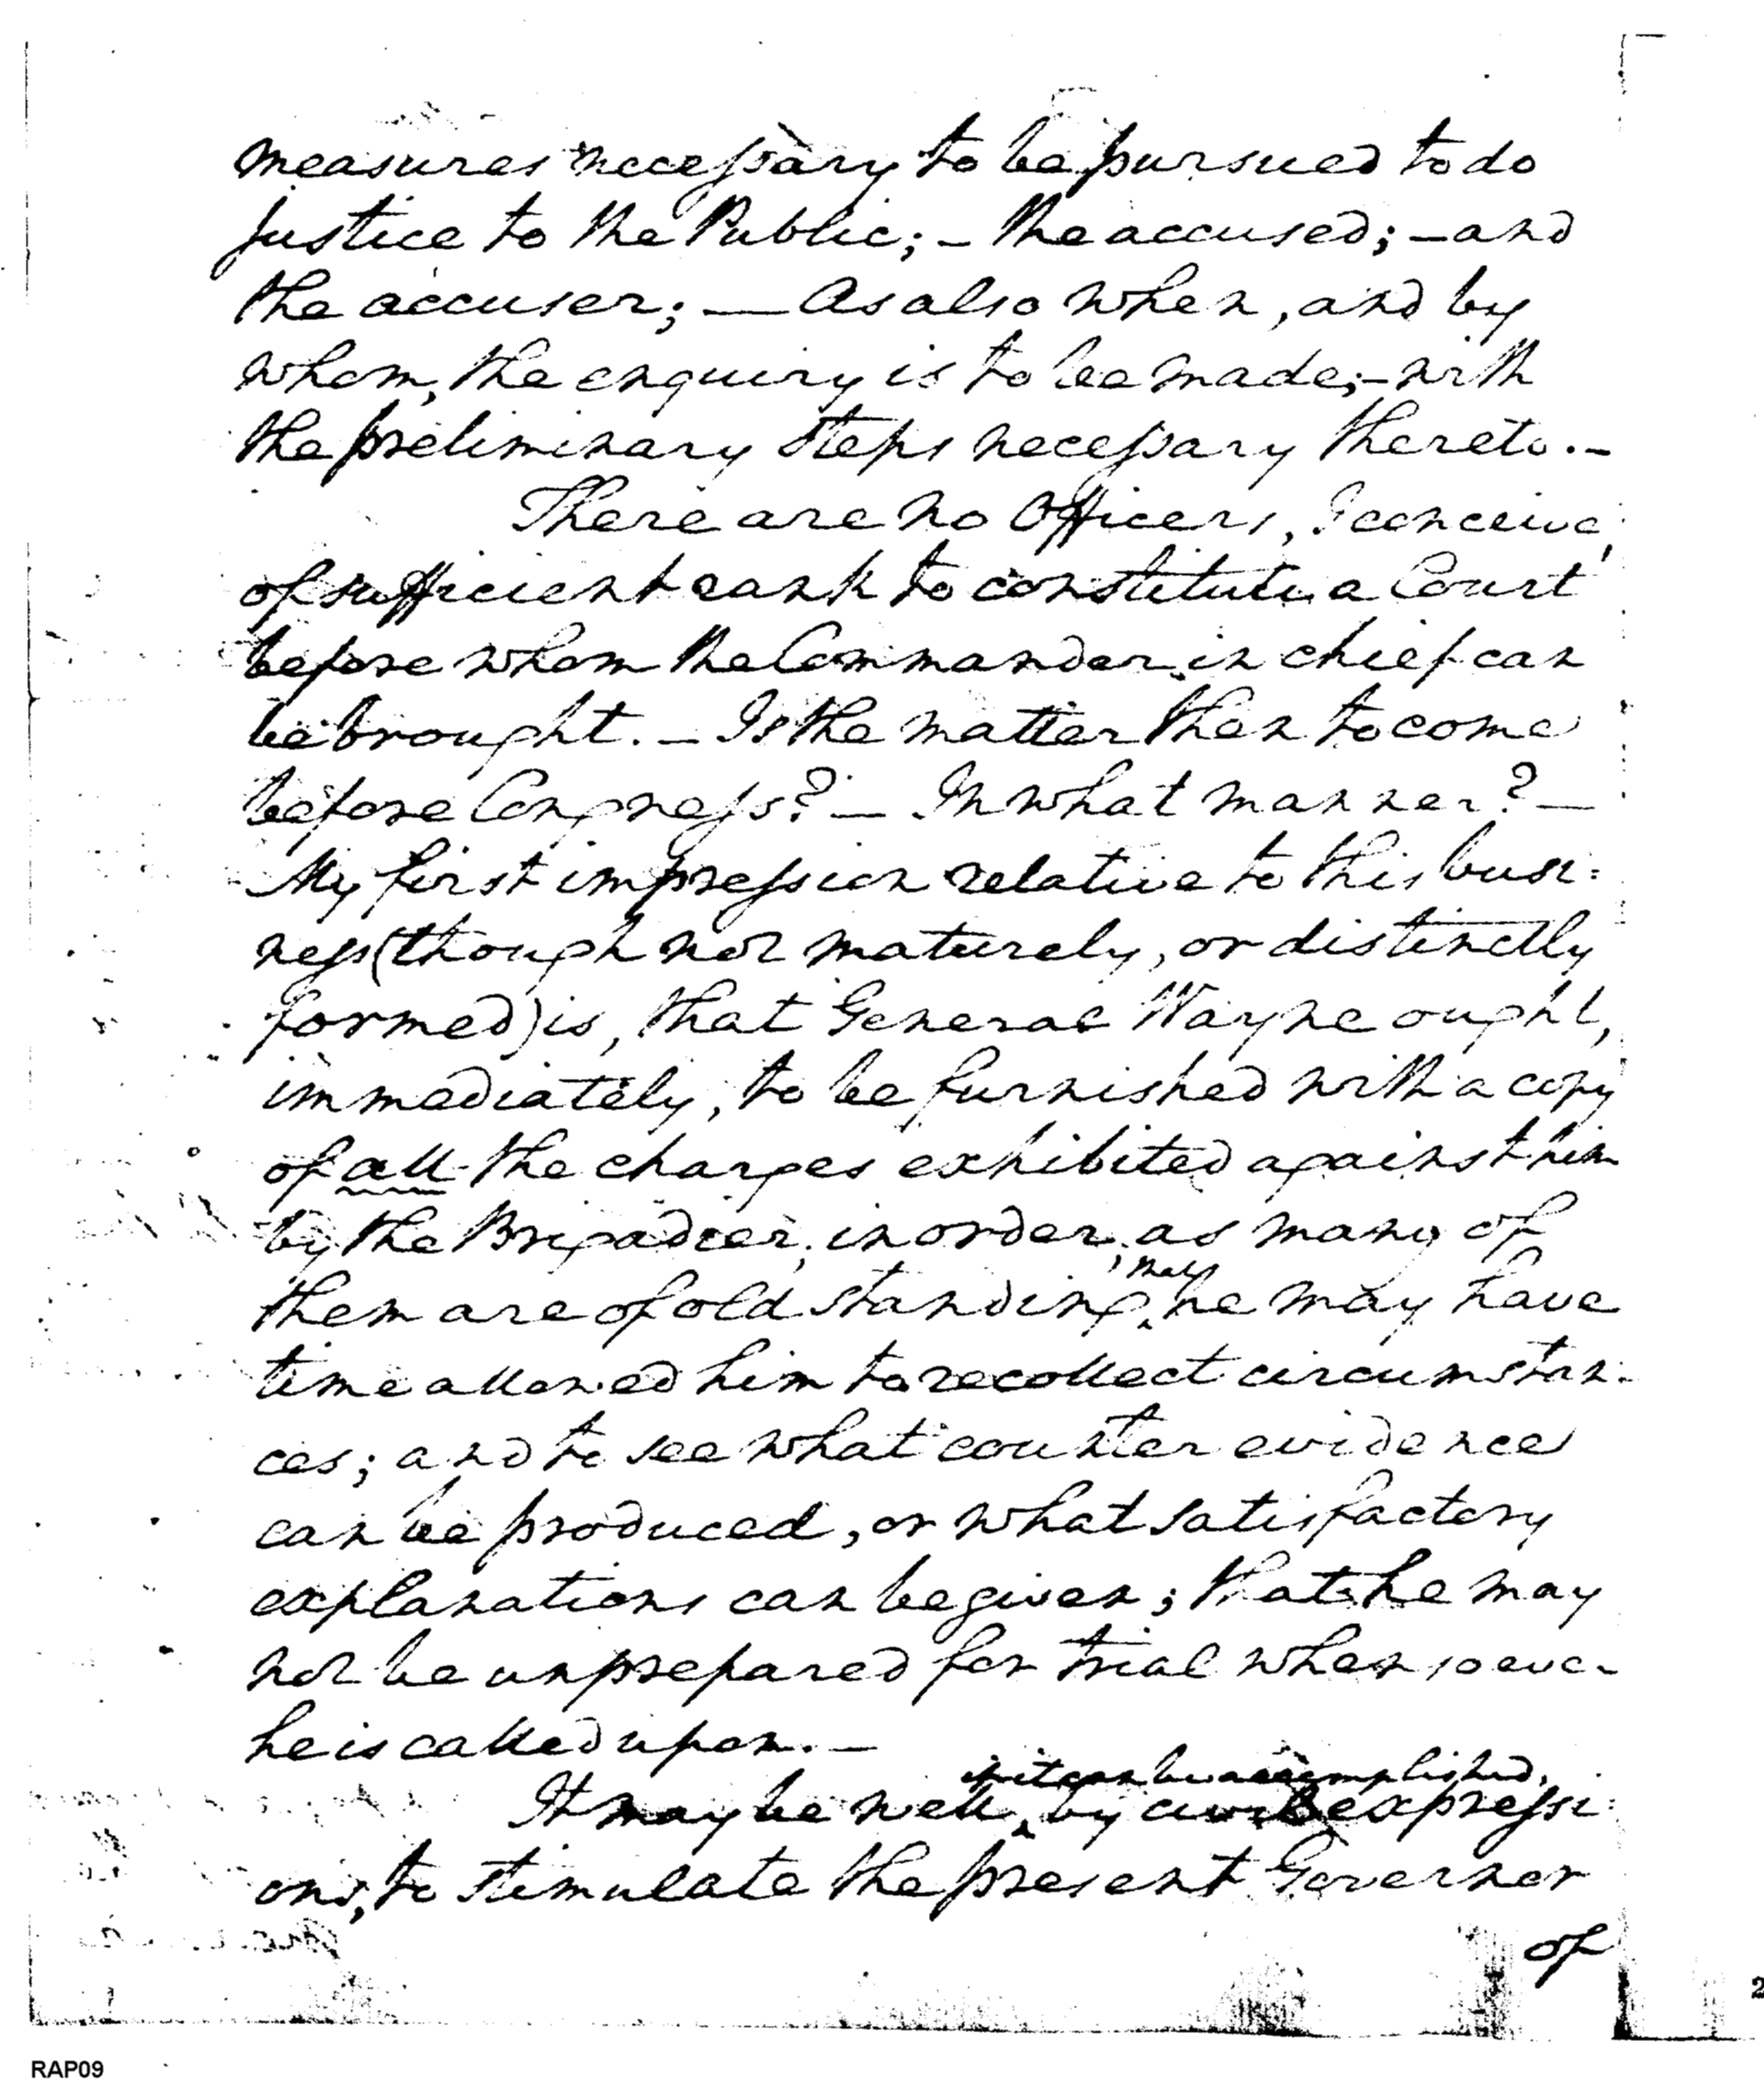 measures necessary to be pursued to do
justice to the Public; – the accused; – and
the accuser; — As also when, and by
whom, the enquiry is to be made; – with
the preliminary steps necessary thereto. –
There are no Officers, I conceive,
of sufficient rank to constitute a Court
before whom the Commander in chief can
be brought. – Is the matter then to come
before Congress? – In what manner? –
My first impression relative to this busi:
ness (though not maturely, or distinctly
formed) is, that General Wayne ought,
immediately, to be furnished with a copy
of all the charges exhibited against him
by the Brigadier, in order, as many of
them are of old standing, that he may have
time allowed him to recollect circumstan:
ces; and to see what counter evidence
can be produced, or what satisfactory
explanations can be given; that he may
not be unprepared for trial whensoever
he is called upon. –
if it can be accomplished,
It may be well, by civil expressi:
ons, to stimulate the present Governor
of
2
RAP09